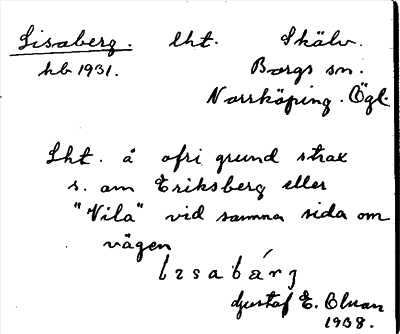 Lisaberg. lht. Skälv.
hb 1931. Borgs sn.
Norrköping. Ögl.
Lht. å ofri grund strax
s. om Eriksberg eller
"Vila" vid samma sida om
vägen
Gustaf E.
1938.